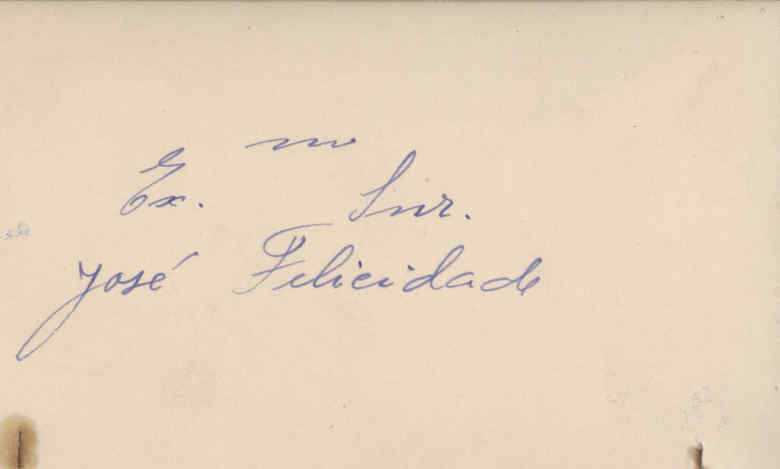 Ex.mo Snr.
José Felicidade